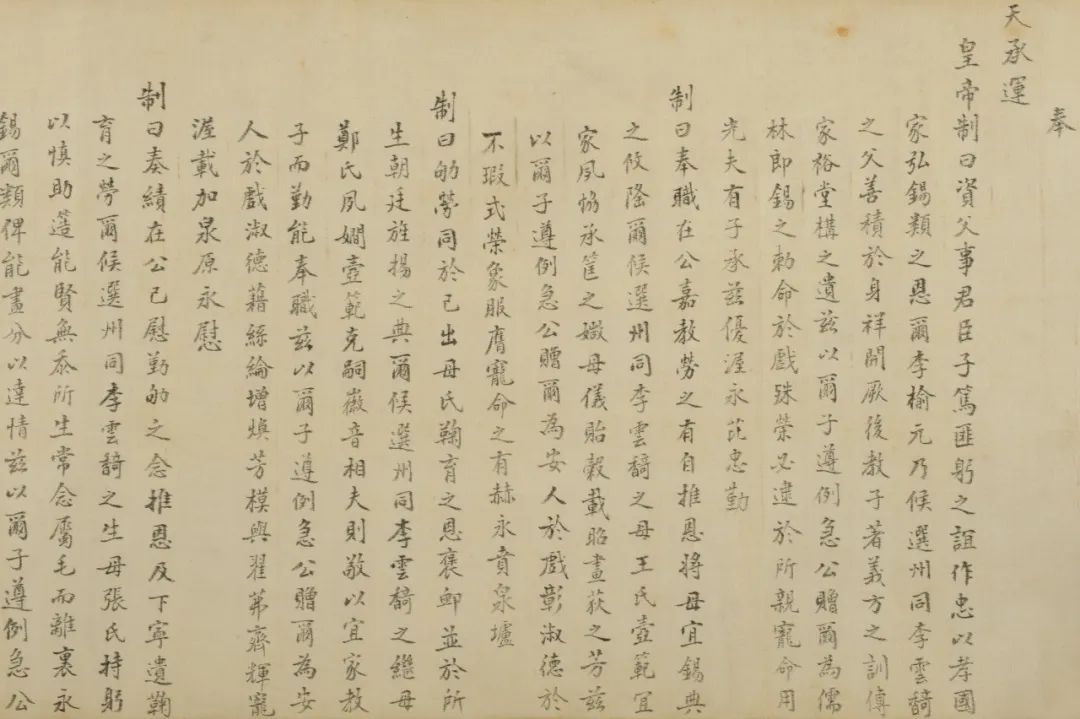 奉
天承運
皇帝制曰資父事君臣子篤匪躬之誼作忠以孝國
家弘錫類之恩爾李榆元乃候選州同李雲騎
之父善積於身祥開厥後教子著義方之訓傳
家裕堂構之遺茲以爾子遵例急公贈爾為儒
林郎錫之勅命於戲殊榮必逮於所親寵命用
光夫有子承茲優渥永茲忠勤
制曰奉職在公嘉教勞之有自推恩將母宜錫典
之攸隆爾候選州同李雲騎之母王氏壼範宜
家夙協承筐之媺母儀貽穀載昭畫荻之芳茲
以爾子遵例急公贈爾為安人於戲彰淑德於
不瑕式榮象服膺寵命之有赫永賁泉壚
制曰劬勞同於己出母氏鞠育之恩褒卹並於所
生朝廷旌揚之典爾候選州同李雲騎之繼母
鄭氏夙嫺壼範克嗣徽音相夫則敬以宜家教
子而勤能奉職茲以爾子遵例急公贈爾為安
人於戲淑德藉絲綸增煥芳模與翟茀齊輝寵
渥載加泉原永慰
制曰奏績在公已慰勤劬之念推恩及下寧遺鞠
育之勞爾候選州同李雲騎之生母張氏持躬
以慎助簉能賢無忝所生常念屬毛而離裏永
錫爾類俾能畫分以達情茲以爾子遵例急公